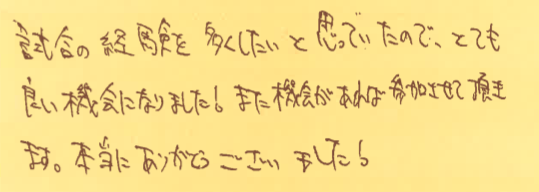 試合の経験を多くしたいと思っていたので、とても
良い機会になりました！また機会があれば参加させて頂き
ます。本当にありがとうございました！